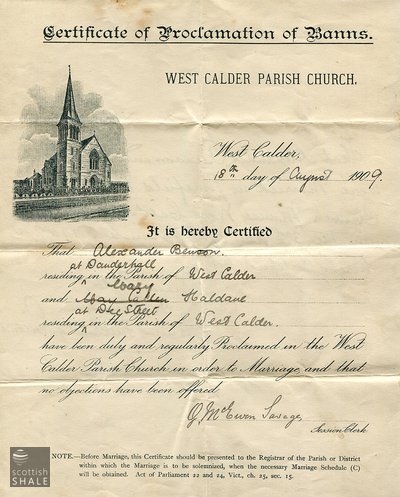 Certificate of Proclamation of Banns.
WEST CALDER PARISH CHURCH.
West Calder,
18th day of August 1909.
It is hereby Certified
That Alexander Benson.
at Dauderhall
residing in the Parish of West Calder
Mary
and Haldane
at Dee Street
residing in the Parish of West Calder.
have been duly and regularly Proclaimed in the West
Calder Parish Church in order to Marriage, and that
no objections have been offered
J McEwen Savage,
Session Clerk
NOTE.—Before Marriage, this Certificate should be presented to the Registrar of the Parish or District
within which the Marriage is to be solemnized, when the necessary Marriage Schedule (C)
will be obtained. Act of Parliament 22 and 24, Vict., ch. 25, sec. 15.
scottish
SHALE